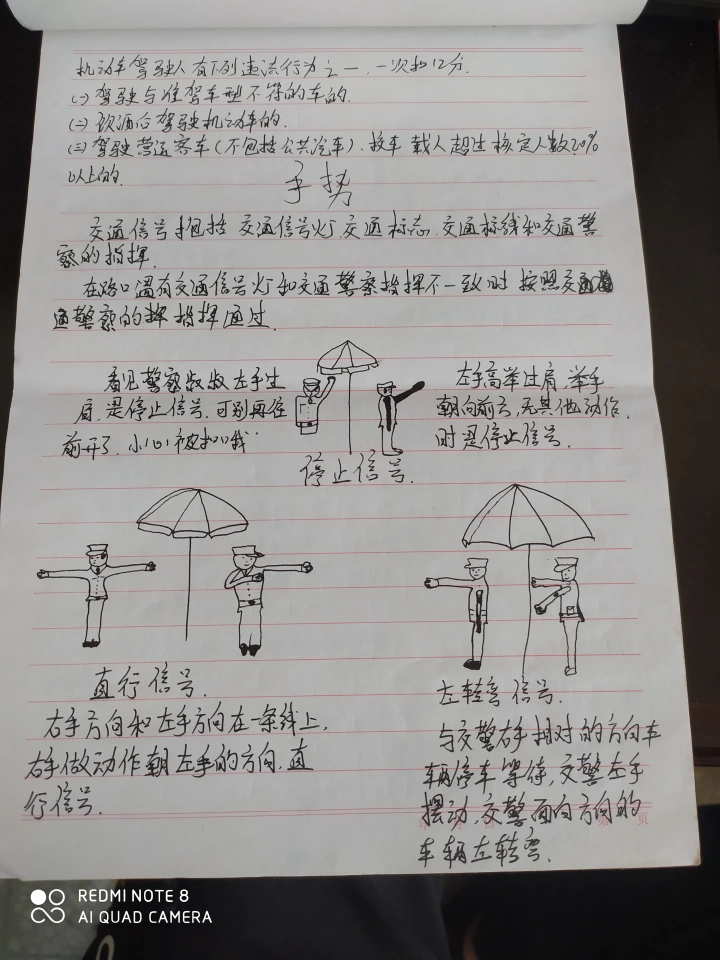 机动车驾驶人有下列违法行为之一,一次扣12分.
(一)驾驶与准驾车型不符的车的.
(二)饮酒后驾驶机动车的.
(三)驾驶营运客车(不包括公共汽车).校车 载人超过核定人数20%
以上的.
手势
交通信号包括 交通信号灯.交通标志.交通标线和交通警
察的指挥.
在路口遇有交通信号灯和交通警察指挥不一致时 按照交
通警察的 指挥通过.
看见警察叔叔左手过
肩.是停止信号.可别再往
前开了.小心被扣哦
左手高举过肩,举手
朝向前方,无其他动作
时是停止信号.
停止信号.
直行信号.
右手方向和左手方向在一条线上,
右手做动作朝左手的方向.直
行信号.
左转弯信号.
与交警右手相对的方向车
辆停车等待,交警左手
摆动,交警面向方向的
车辆左转弯.
页
REDMI NOTE 8
AI QUAD CAMERA